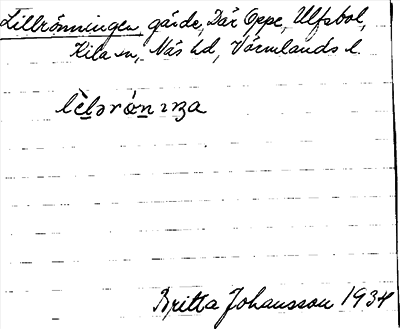 Lillrönningen gärde, Där Oppe, Ulfsbol,
Kila sn, Näs hd, Värmlands l.
lèlǝrǿnıŋa
Britta Johansson 1934